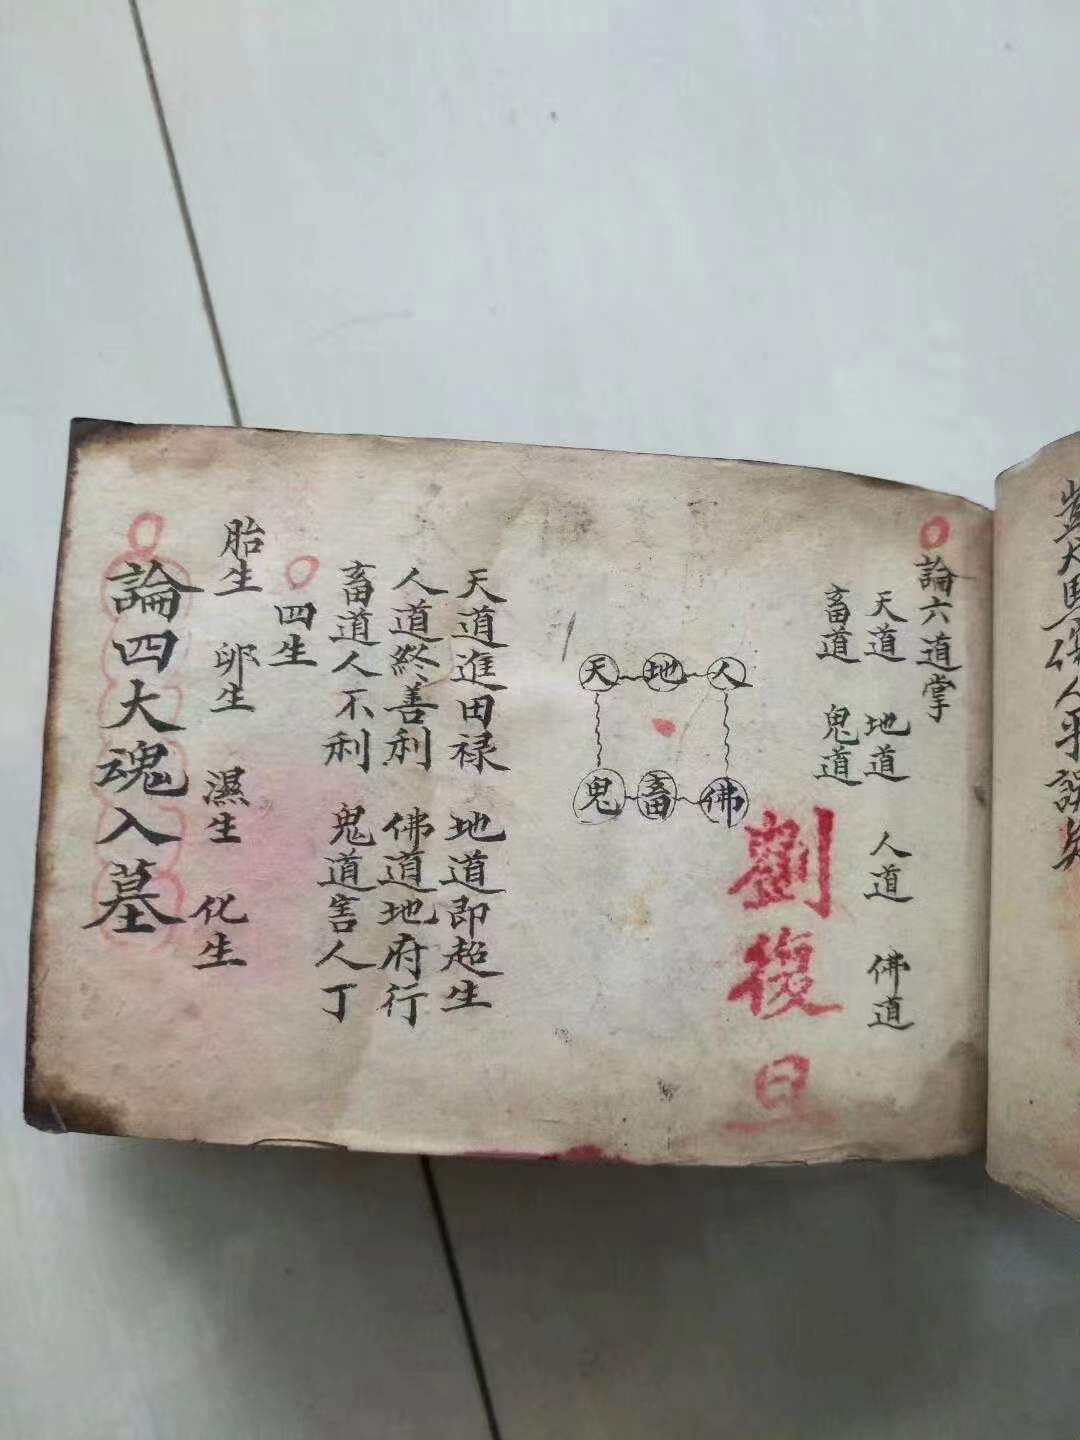 論六道掌
天道 地道 人道 佛道
畜道 鬼道
劉復旦
天 地 人
鬼 畜 佛
天道進田禄 地道即超生
人道終善利 佛道地府行
畜道人不利 鬼道害人丁
四生
胎生 卵生 濕生 化生
論四大魂入墓